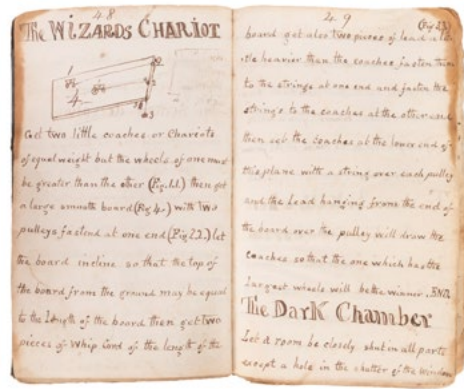 48
The WIZARDS CHARIOT
1
2
4
3
Get two little coaches or Chariots
of equal weight but the wheels of one must
be greater than the other (Fig 1.1.) then get
a large smooth board (Fig 4.) with two
pulleys fastend at one end (Fig 2.2.) let
the board incline so that the top of
the board from the ground may be equal
to the Length of the board then get two
pieces of whip Cord of the length of the
49
board get also two pieces of lead a
heavier than the coaches fasten them
to the strings at one end and fasten the
strings to the coaches at the other end
then set the coaches at the lower end of
this plane with a string over each pulley
and the Lead hanging from the end of
the board over the pulley will draw the
coaches so that the one which has the
Largest wheels will be the winner. END
The DarK Chamber
Let a room be closely shut in all parts
except a hole in the shutter of the window